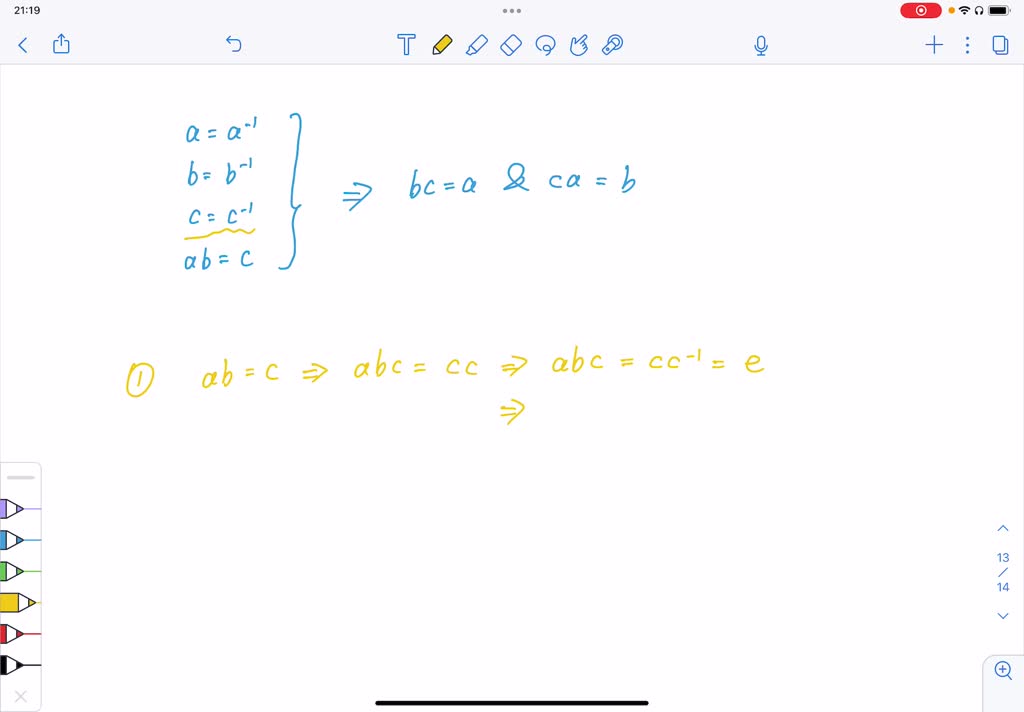 21:19
T
a = a⁻¹
b = b⁻¹
c = c⁻¹
ab = c
⇒ bc = a & ca = b
① ab = c ⇒ abc = cc ⇒ abc = cc⁻¹ = e
⇒
13
/
14